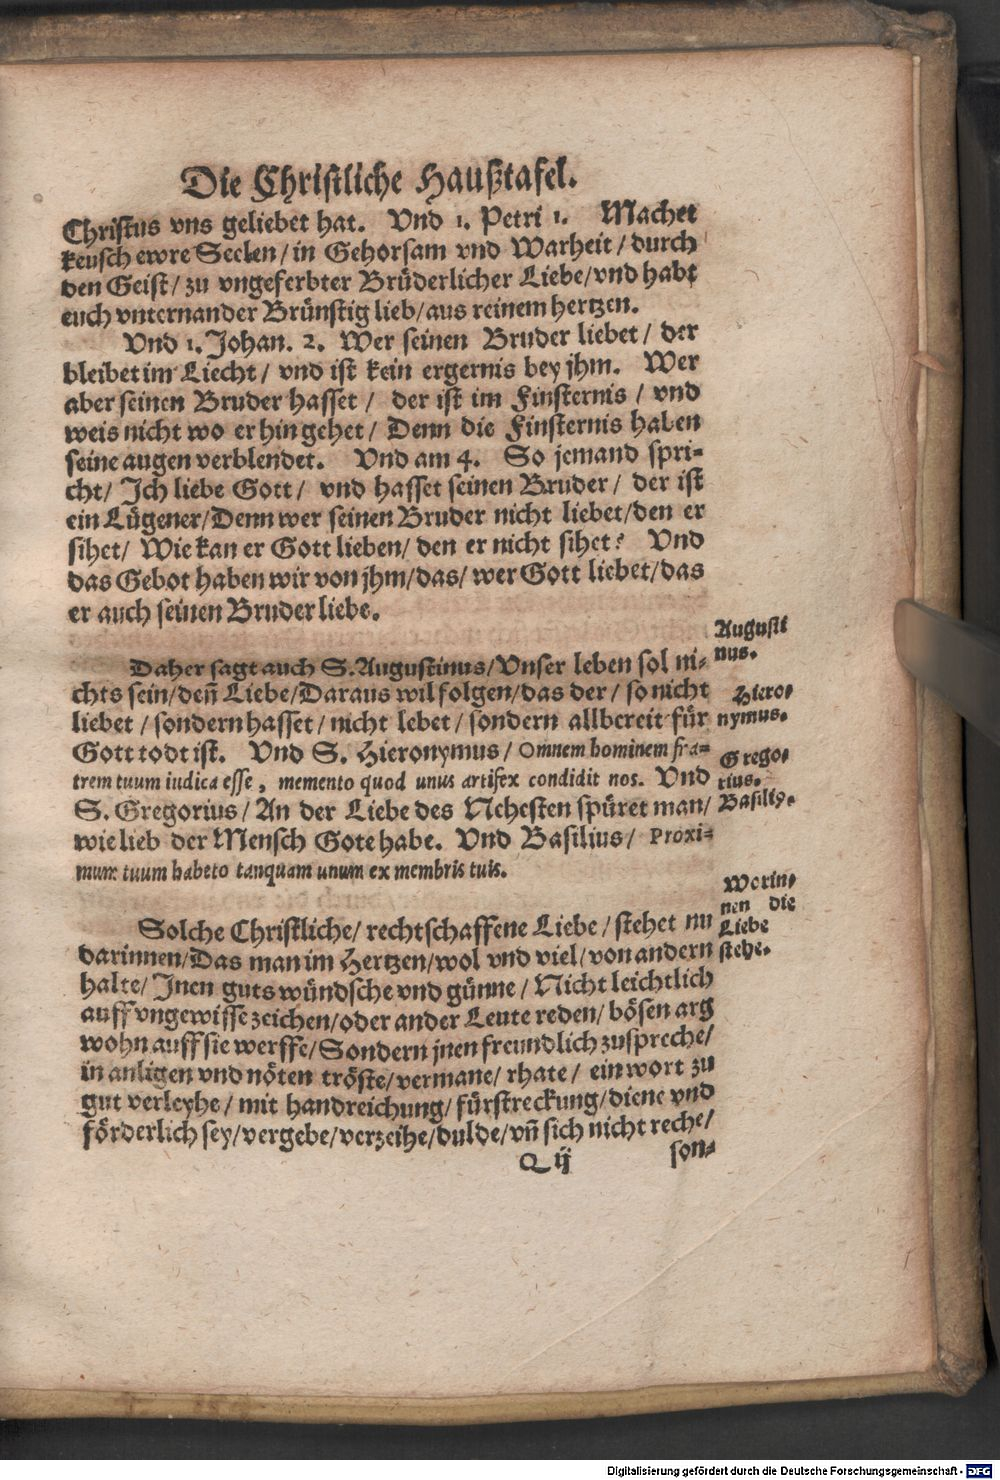 Die Christliche Haußtafel.
Christus vns geliebet hat. Vnd 1. Petri 1. Machet
keusch ewre Seelen/ in Gehorsam vnd Warheit/ durch
den Geist/ zu vngeferbter Brüderlicher Liebe/ vnd habt
euch vnternander Brünstig lieb/ aus reinem hertzen.
Vnd 1. Johan. 2. Wer seinen Bruder liebet/ der
bleibet im Liecht/ vnd ist kein ergernis bey jhm. Wer
aber seinen Bruder hasset/ der ist im Finsternis/ vnd
weis nicht wo er hin gehet/ Denn die Finsternis haben
seine augen verblendet. Vnd am 4. So jemand spri-
cht/ Ich liebe Gott/ vnd hasset seinen Bruder/ der ist
ein Lügener/ Denn wer seinen Bruder nicht liebet/ den er
sihet/ Wie kan er Gott lieben/ den er nicht sihet? Vnd
das Gebot haben wir von jhm/ das/ wer Gott liebet/ das
er auch seinen Bruder liebe.
Daher sagt auch S. Augustinus/ Vnser leben sol ni-
chts sein/ deñ Liebe/ Daraus wil folgen/ das der/ so nicht
liebet/ sondern hasset/ nicht lebet/ sondern allbereit für
Gott todt ist. Vnd S. Hieronymus/ Omnem hominem fra-
trem tuum iudica esse, memento quod unus artifex condidit nos. Vnd
S. Gregorius/ An der Liebe des Nehesten spüret man/
wie lieb der Mensch Gote habe. Vnd Basilius/ Proxi-
mum tuum habeto tanquam unum ex membris tuis.
Augusti
nus.
Hiero-
nymus.
Grego-
rius.
Basiliꝰ.
Solche Christliche/ rechtschaffene Liebe/ stehet nu
darinnen/ Das man im Hertzen/ wol vnd viel/ von andern
halte/ Inen guts wündsche vnd günne/ Nicht leichtlich
auff vngewisse zeichen/ oder ander Leute reden/ bösen arg
wohn auff sie werffe/ Sondern jnen freundlich zuspreche/
in anligen vnd nöten tröste/ vermane/ rhate/ ein wort zu
gut verleyhe/ mit handreichung/ fürstreckung/ diene vnd
förderlich sey/ vergebe/ verzeihe/ dulde/ vñ sich nicht reche/
Worin-
nen die
Liebe
stehe.
Q ij
son-
Digitalisierung gefördert durch die Deutsche Forschungsgemeinschaft - DFG